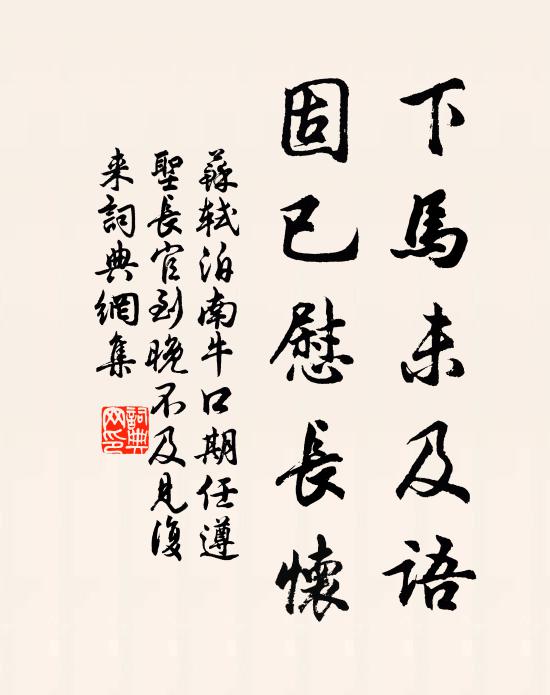 下馬未及語
固已慰長懷
蘇軾泊南牛口期任遵
聖長官到晚不及見復
来詞典網集
詞典
网印